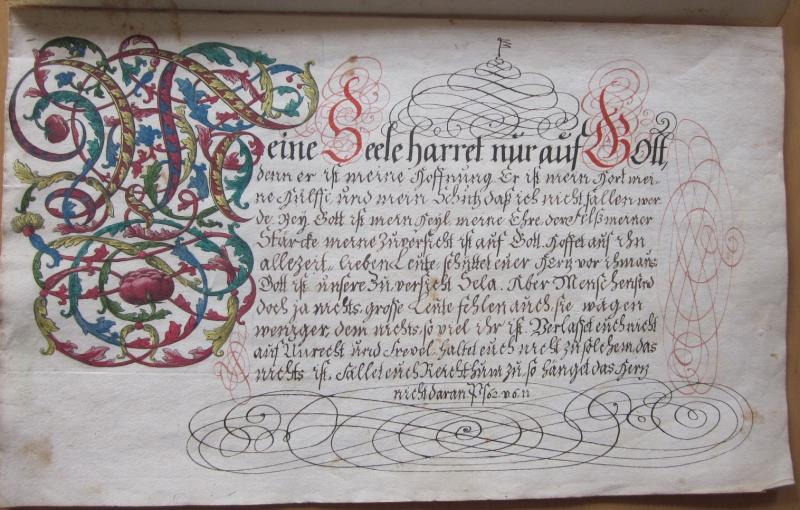 Meine Seele harret nur auf Gott,
denn er ist meine Hoffnung Er ist mein Hort mei-
ne Hülffe und mein Schutz daß ich nicht fallen wer
de. Bey Gott ist mein Heyl meine Ehre der Felß meiner
Stärcke meine Zuversicht ist auf Gott. Hoffet auf ihn
allezeit, lieben Leute, schüttet euer Hertz vor ihm aus
Gott ist unsere Zuversicht Sela. Aber Menschen sind
doch ja nichts, grosse Leute fehlen auch, sie wägen
weniger dem nichts, so viel ihr ist. Verlasset euch nicht
auf Unrecht und Frevel, haltet euch nicht zu solchem, das
nichts ist. Fället euch Reichthum zu, so hänget das Hertz
nicht daran Ps 62 v 6 11